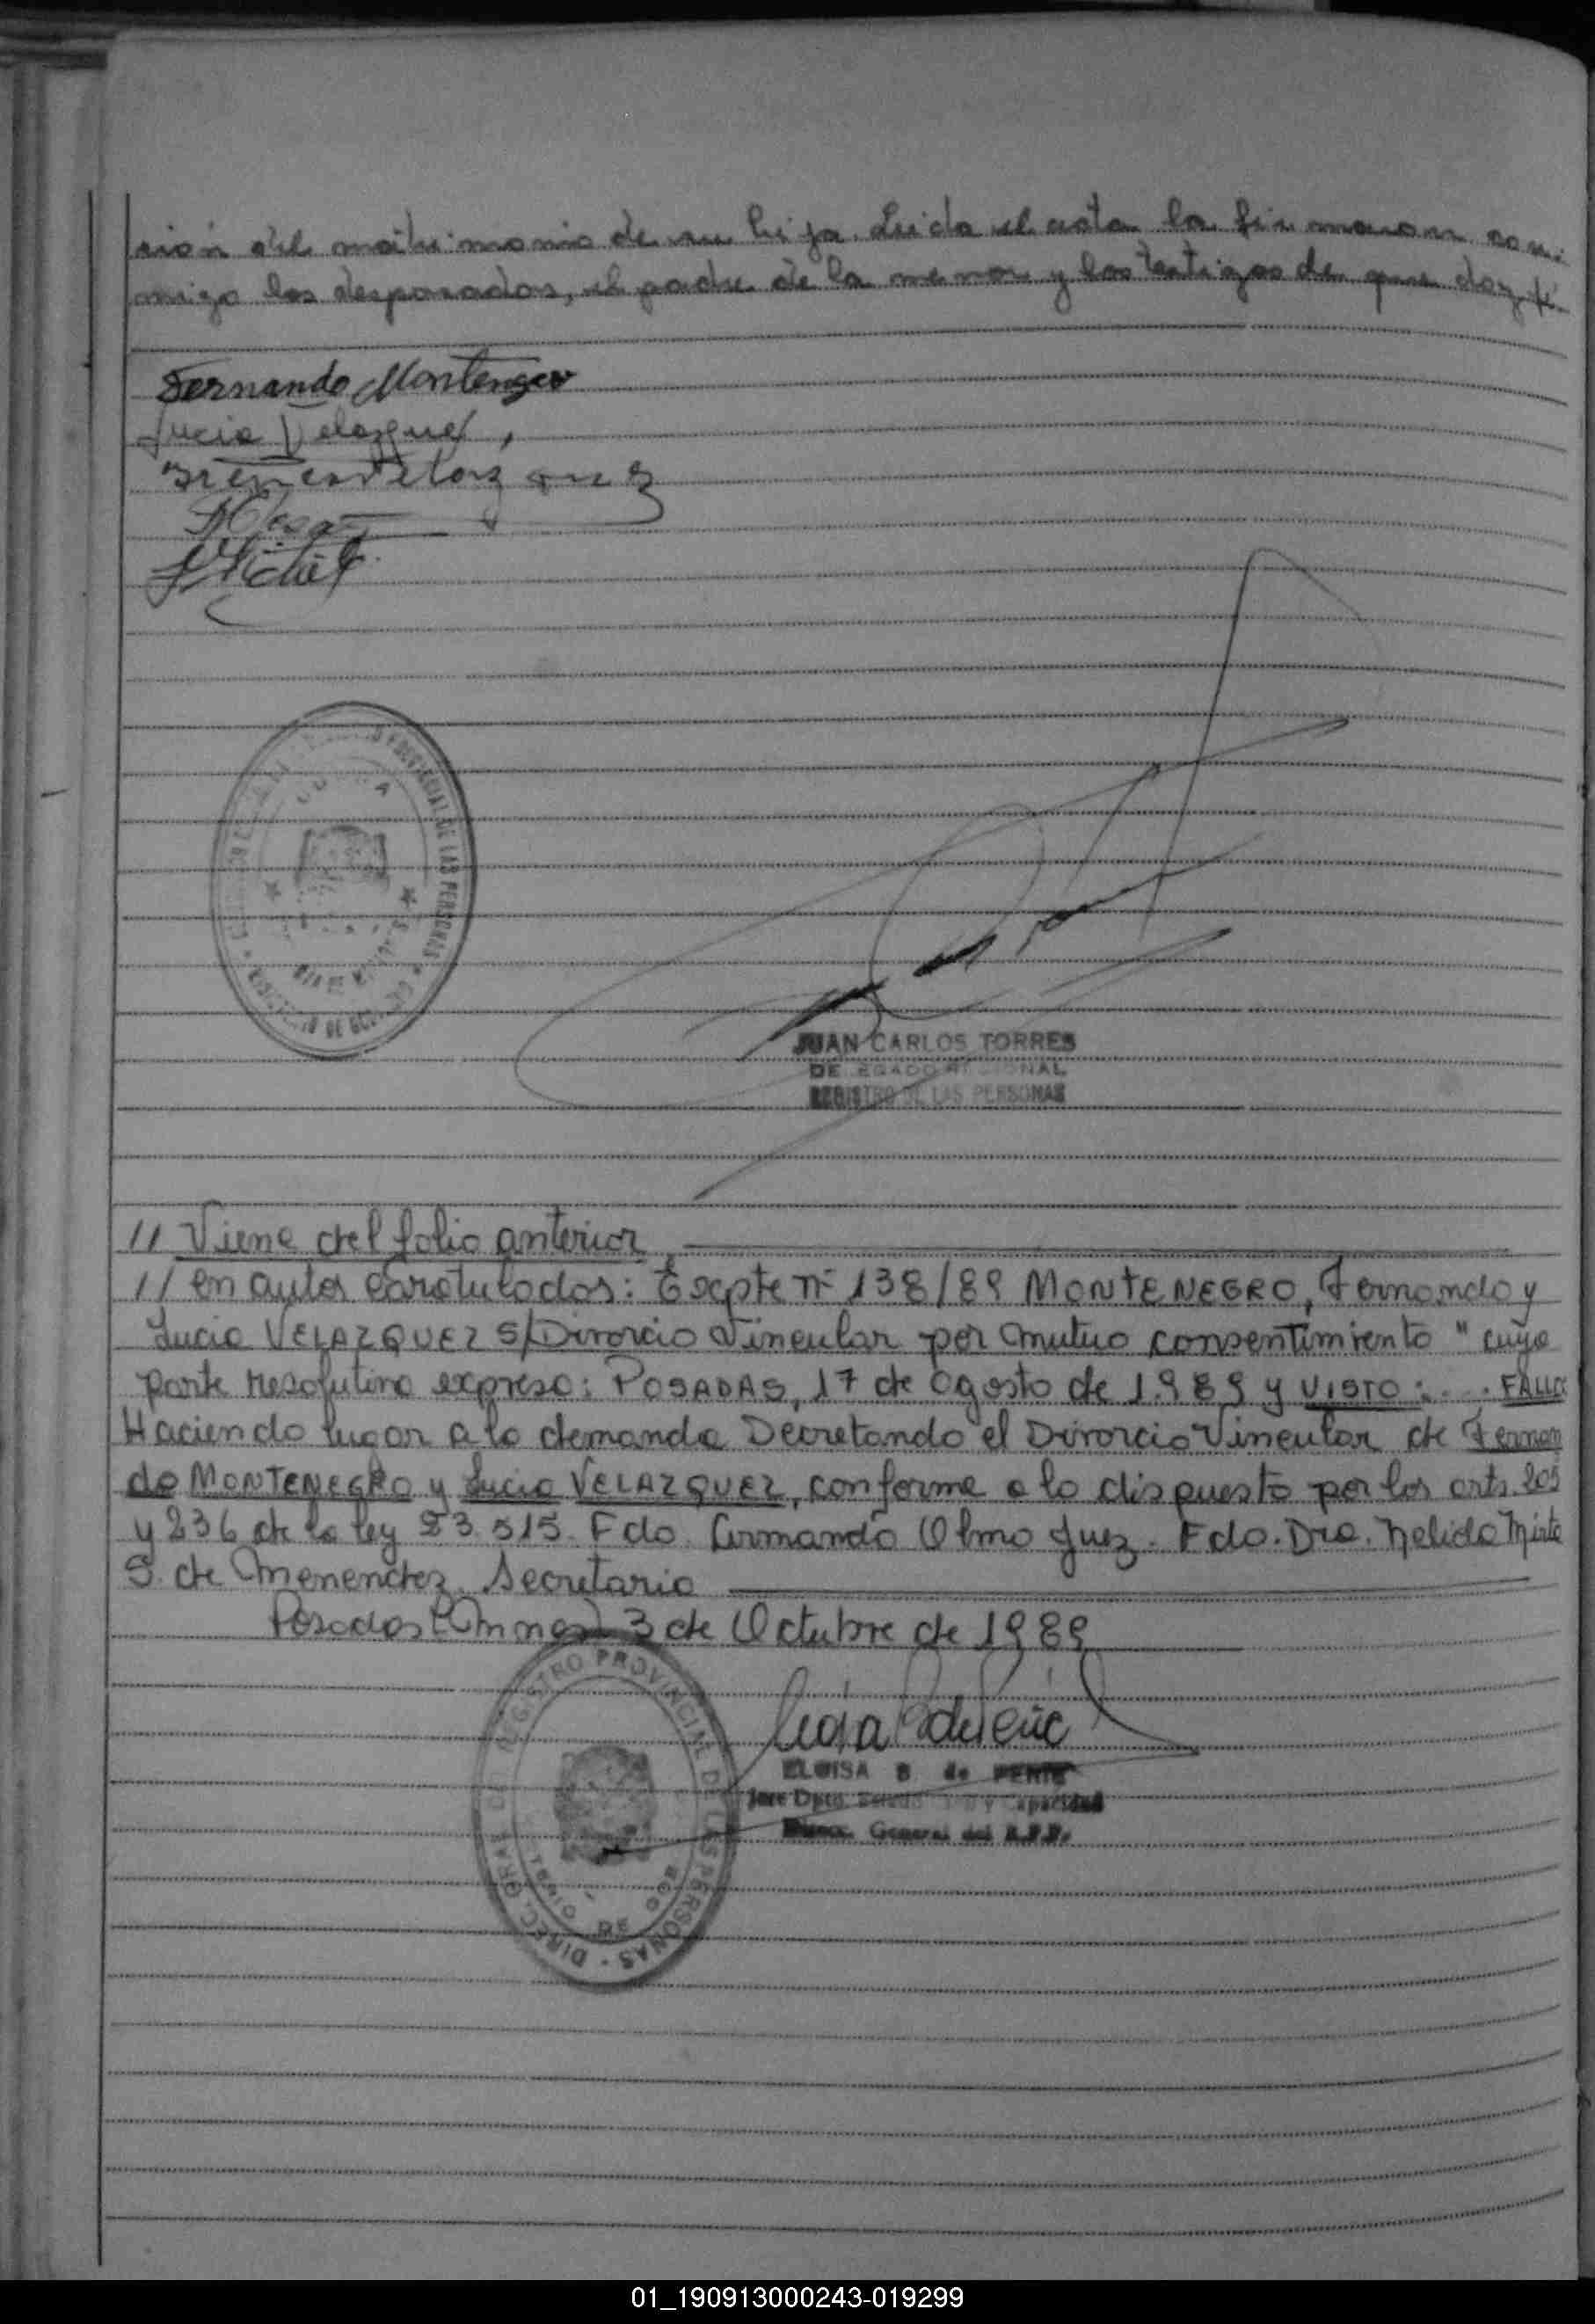 ción del matrimonio de su hija. Leida el acta la firmaron con-
migo los desposados, el padre de la menor y los testigos de que doy fé.
Fernando Montenegro
Lucia Velazquez
Irineo Velazquez
JUAN CARLOS TORRES
DELEGADO REGIONAL
REGISTRO DE LAS PERSONAS
// Viene del folio anterior
// en autos Carotulados: Expte Nº 138/89 MONTENEGRO, Fernando y
Lucia VELAZQUEZ S/Divorcio Vincular por mutuo consentimiento " cuya
parte resolutiva expresa: POSADAS, 17 de Agosto de 1.989 y VISTO: ... FALLO:
Haciendo lugar a la demanda Decretando el Divorcio Vincular de Fernan
do MONTENEGRO y Lucia VELAZQUEZ, conforme a lo dispuesto por los arts. 205
y 236 de la ley 23.515. Fdo. Armando Olmo Juez. Fdo. Dra. Nelida Mirta
S. de Menendez. Secretaria
Posadas (Mnes) 3 de Octubre de 1989
REGISTRO PROVINCIAL DE LAS PERSONAS - DIREC. GRAL DEL
ELOISA B de PERIE
Jefe Dpto. Estado Civil y Capacidad
Direcc. General del R.P.P.
01_190913000243-019299